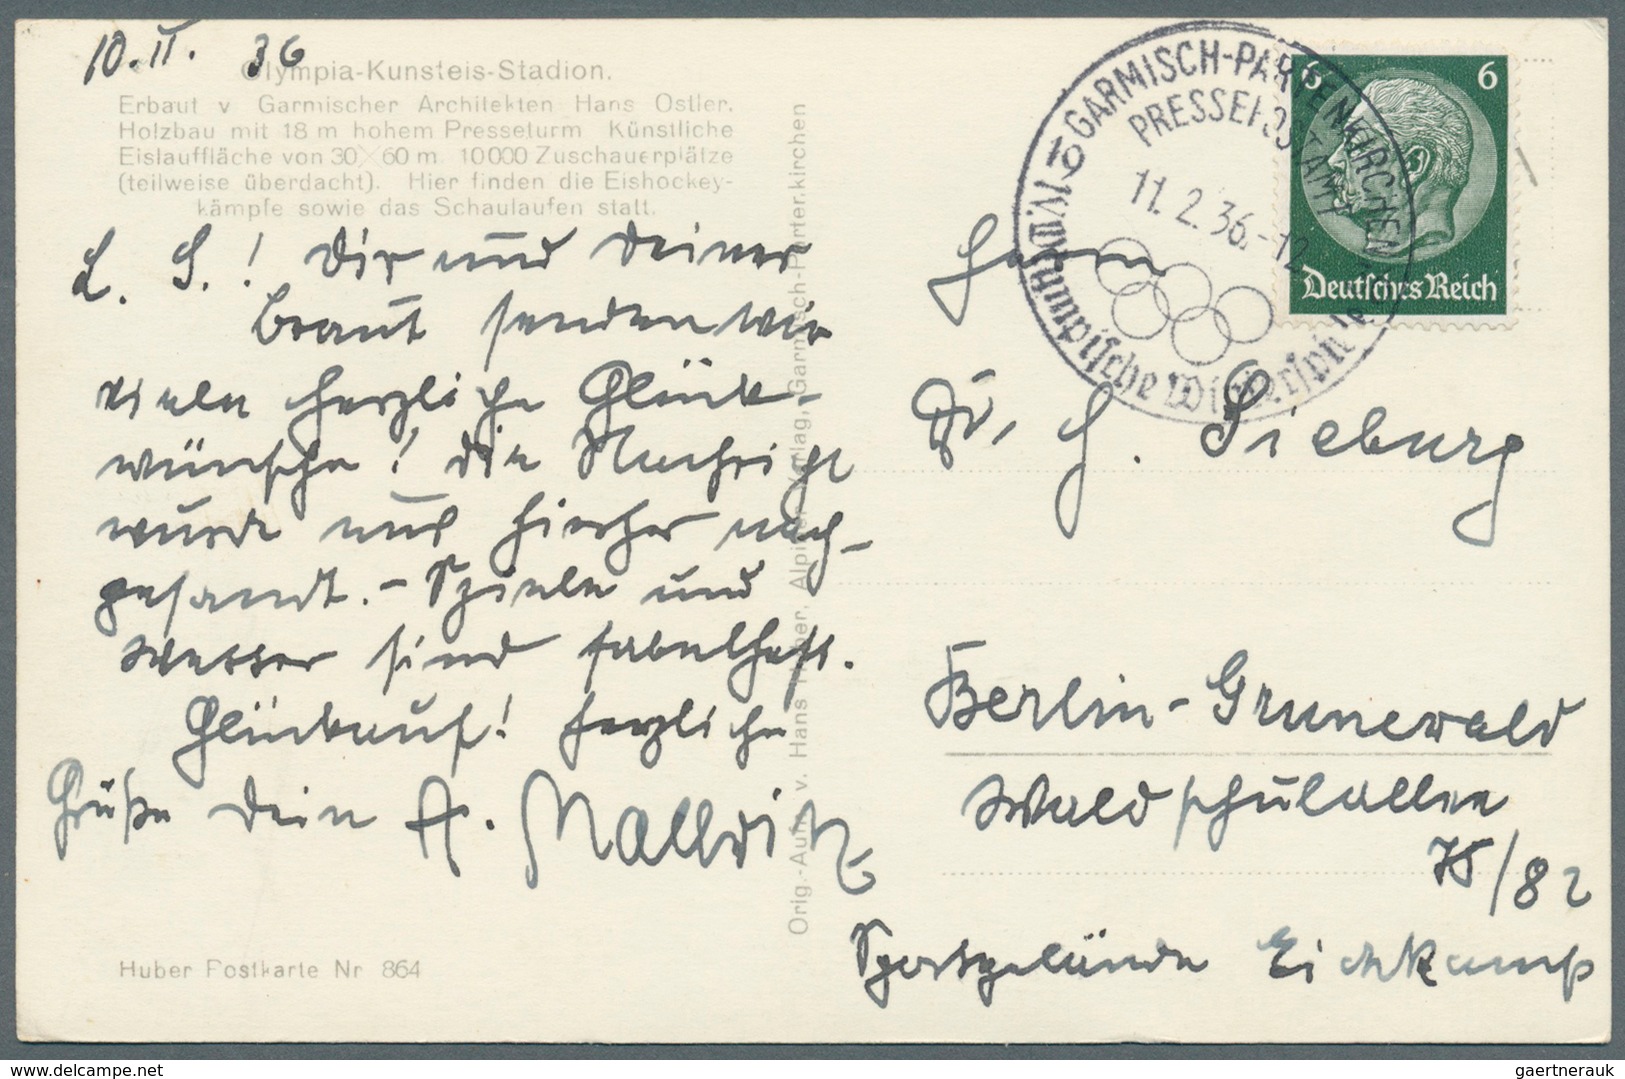 10. II. 36
Olympia-Kunsteis-Stadion.
Erbaut v Garmischer Architekten Hans Ostler.
Holzbau mit 18 m hohem Presseturm Künstliche
Eislauffläche von 30×60 m 10000 Zuschauerplätze
(teilweise überdacht). Hier finden die Eishockey-
kämpfe sowie das Schaulaufen statt.
L. S.! Dir und Deiner
Braut senden wir
viele herzliche Glück-
wünsche! Die Nachricht
wurde uns hierher nach-
gesandt. – Spiele und
Wetter sind fabelhaft.
Glückauf! Herzliche
Grüße Dein A. Mallwitz
Huber Postkarte Nr 864
Orig.-Aufn. v. Hans Huber, Alpiner Verlag, Garmisch-Partenkirchen
GARMISCH-PARTENKIRCHEN
PRESSEPOSTAMT
11. 2. 36.-12
IV. Olympische Winterspiele
6 6
Deutsches Reich
Herrn
Dr. G. Sieburg
Berlin-Grunewald
Waldschulallee
75/82
Sportgelände Eichkamp
gaertnerauk